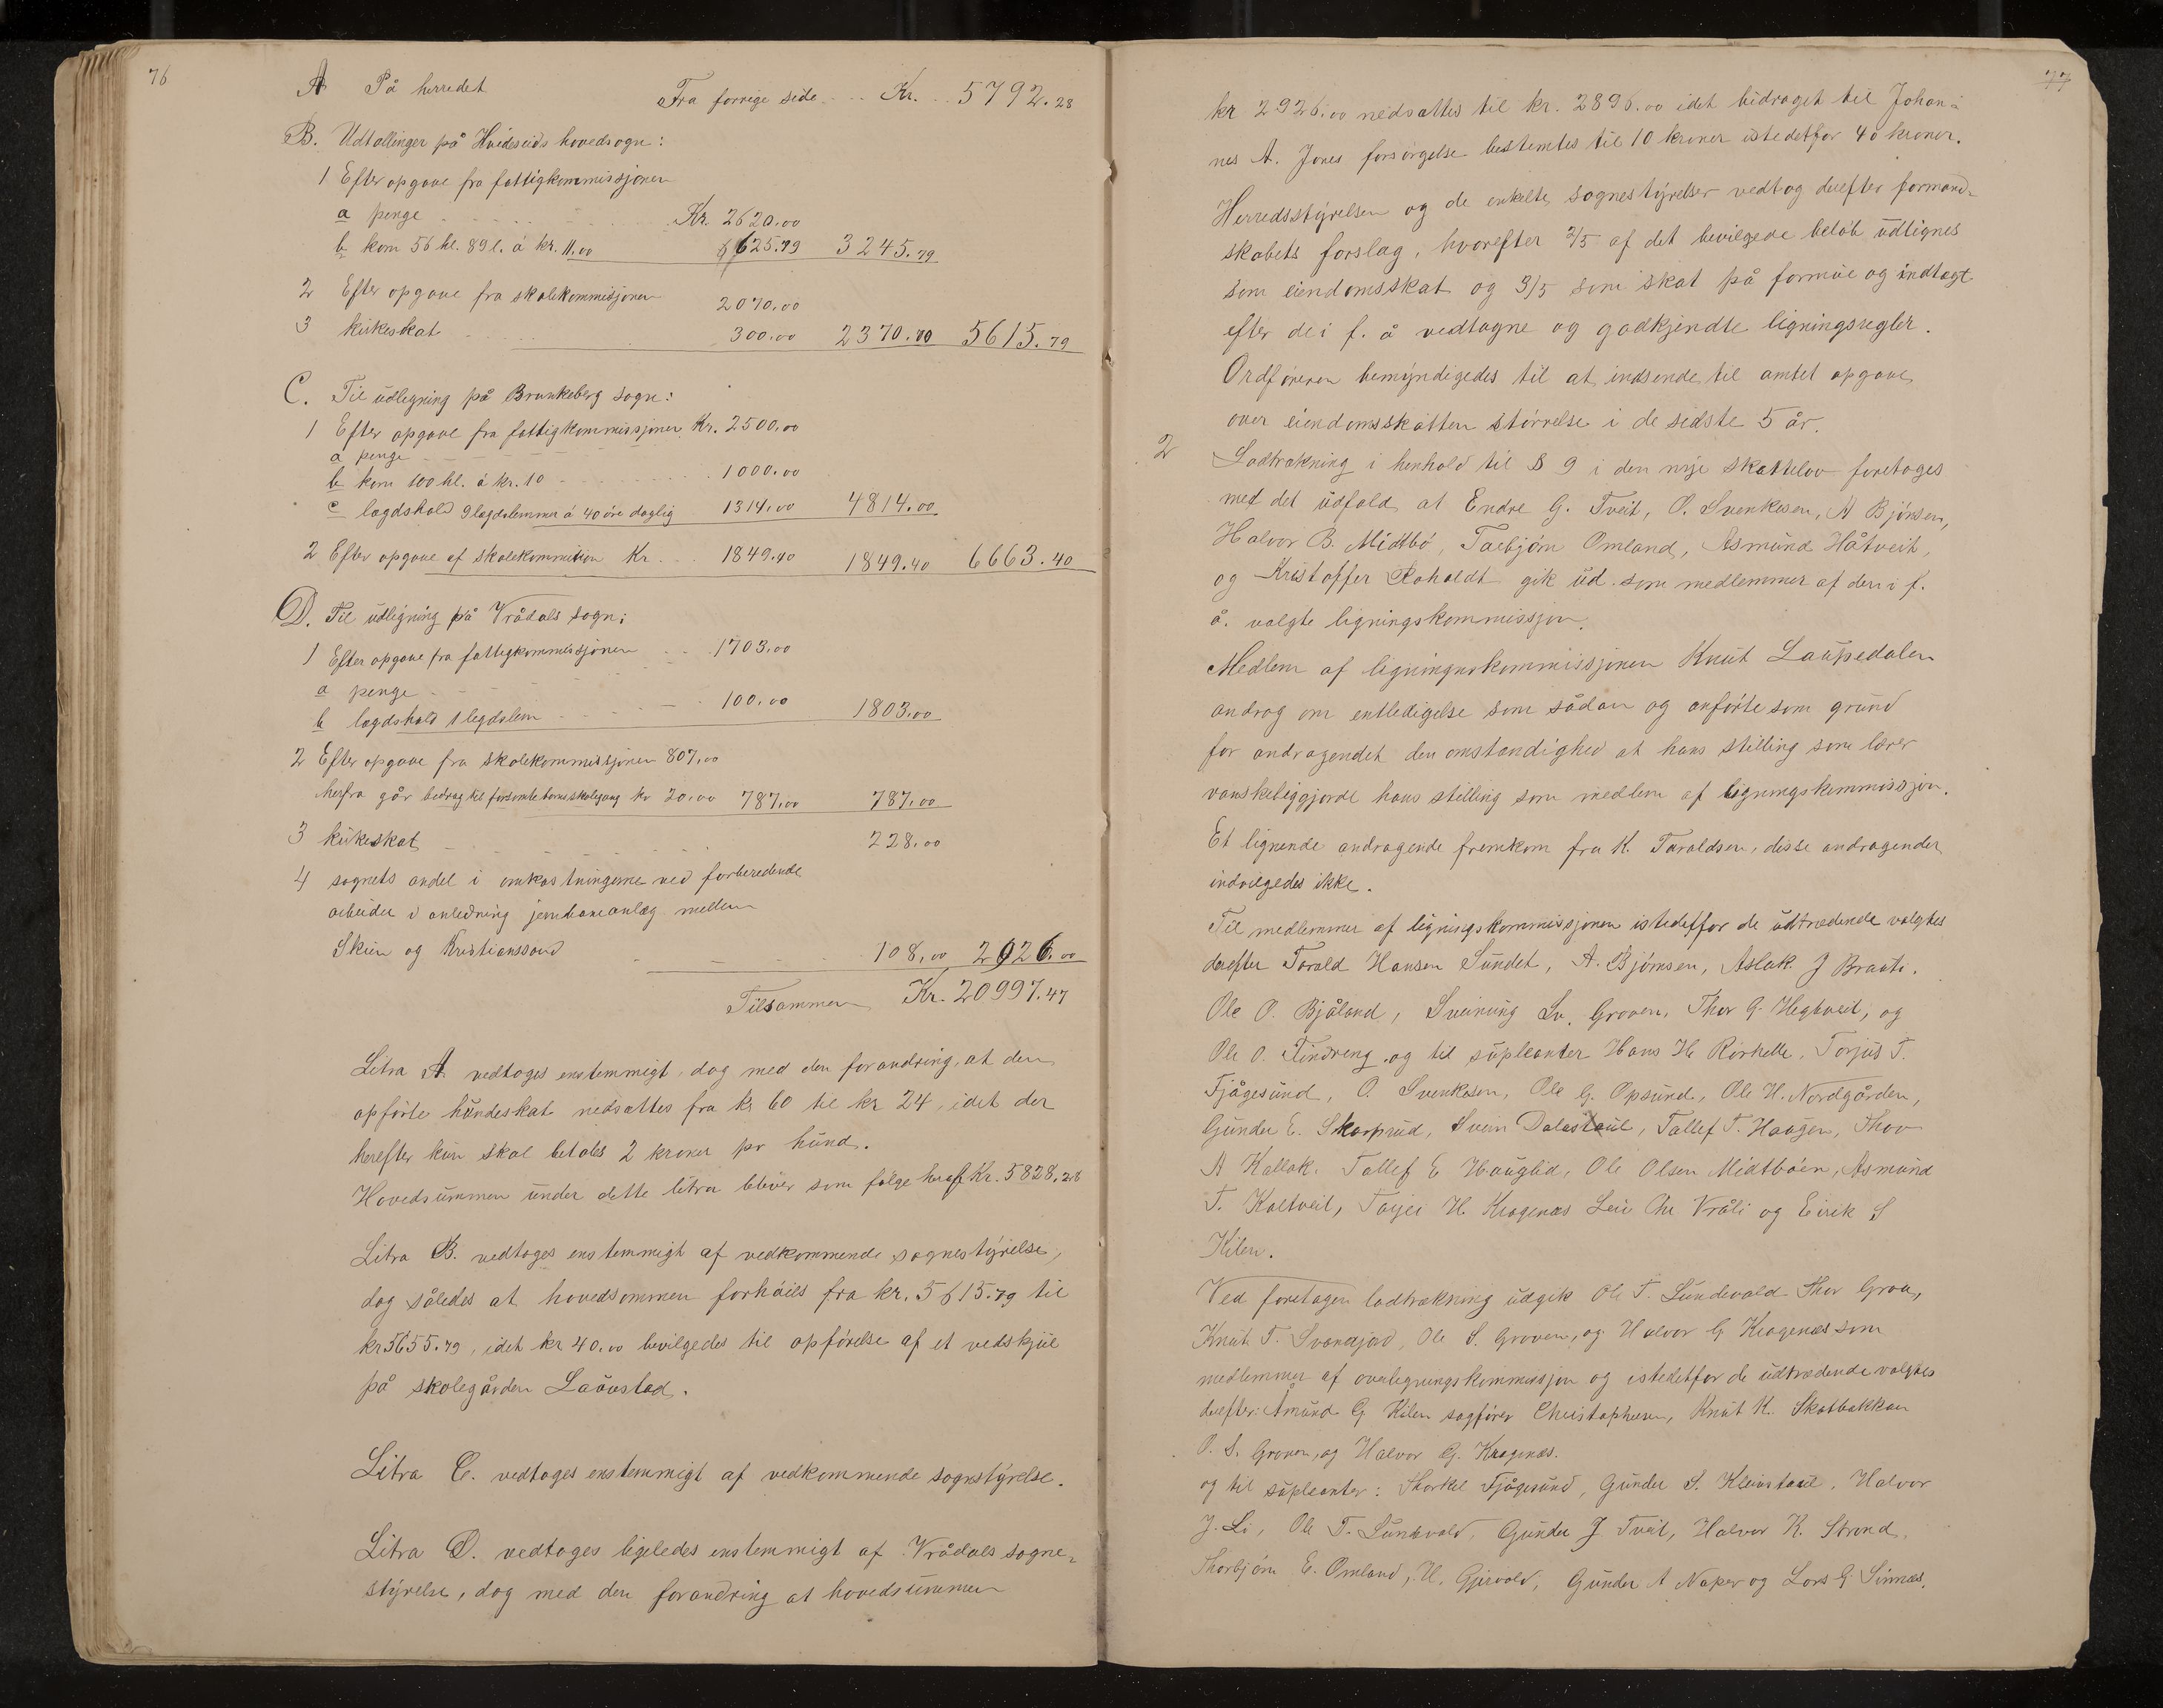 76
A På herredet Fra forrige side Kr. 5792.28
B. Udtællinger på Hvideseids hovedsogn:
1 Efter opgave fra fattigkommissjonen
a penge Kr. 2620.00
b korn 56 hl. 89 l. á kr. 11.00 625.79 3245.79
2 Efter opgave fra skolekommissjonen 2070.00
3 kirkeskat 300.00 2370.00 5615.79
C. Til udligning på Brunkeberg sogn:
1 Efter opgave fra fattigkommissjonen Kr. 2500.00
a penge
b korn 100 hl. á kr. 10 1000.00
c lægdshold 9 lægdslemmer á 40 øre daglig 1314.00 4814.00
2 Efter opgave af skolekommission Kr. 1849.40 1849.40 6663.40
D. Til udligning på Vrådals sogn:
1 Efter opgave fra fattigkommissjonen 1703.00
a penge
b lægdshold 1 legdslem 100.00 1803.00
2 Efter opgave fra skolekommissjonen 807.00
herfra går bidrag til forsømte børns skolegang kr 20.00 787.00 787.00
3 kirkeskat 228.00
4 sognets andel i omkostningerne ved forberedende
arbeider i anledning jernbaneanlæg mellem
Skien og Kristianssand 108.00 2926.00
Tilsammen Kr. 20997.47
Litra A. vedtoges enstemmigt, dog med den forandring, at den
opførte hundeskat nedsattes fra kr 60 til kr 24, idet der
herefter kun skal betales 2 kroner pr hund.
Hovedsummen under dette litra bliver som følge heraf Kr. 5828.28
Litra B. vedtoges enstemmigt af vedkommende sognestyrelse,
dog således at hovedsommen forhøies fra kr. 5615.79 til
kr 5655.79, idet kr 40.00 bevilgedes til opførelse af et vedskjul
på skolegården Lauvstad.
Litra C. vedtoges enstemmigt af vedkommende sognstyrelse.
Litra D. vedtoges ligeledes enstemmigt af Vrådals sogne-
styrelse, dog med den forandring at hovedsummen
77
kr 2926.00 nedsattes til kr. 2896.00 idet bidraget til Johan-
nes A. Jores forsørgelse bestemtes til 10 kroner istedetfor 40 kroner.
Herredsstyrelsen og de enkelte sognestyrelser vedtog derefter formand-
skabets forslag, hvorefter 2/5 af det bevilgede beløb udlignes
som eiendomsskat og 3/5 som skat på formue og indtægt
efter de i f. å vedtagne og godkjendte ligningsregler.
Ordføreren bemyndigedes til at indsende til amtet opgave
over eiendomsskatten størrelse i de sidste 5 år.
2 Lodtrækning i henhold til § 9 i den nye skattelov foretoges
med det udfald at Endre G. Tveit, O. Svenkesen, A Bjønsen,
Halvor B. Midtbø, Tarbjørn Omland, Asmund Håtveit,
og Kristoffer Roholdt gik ud som medlemmer af den i f.
å. valgte ligningskommissjon.
Medlem af ligningnskommissjonen Knut Laupedalen
androg om entledigelse som sådan og anførte som grund
for andragendet den omstændighed at hans stilling som lærer
vanskeliggjorde hans stilling som medlem af ligningskommissjon.
Et lignende andragende fremkom fra K. Taraldsen, desse andragender
indvilgedes ikke.
Til medlemmer af ligningskommissjonen istedetfor de udtrædende valgtes
derefter Tarald Hansen Sundet, A. Bjørnsen, Aslak J Brauti.
Ole O. Bjåland, Sveinung Sv. Groven, Thor G. Hegtveit, og
Ole O. Tindreng og til supleanter Hans H. Rørhelle, Torjus T.
Fjågesund, O. Svenkesen, Ole G. Opsund, Ole H. Nordgården,
Gunder E. Skarprud, Svein Dalestaul, Tallef T. Haugen, Thov
A Kallak. Tallef E Hauglid, Ole Olsen Midtbøen, Asmund
T. Kaltveit, Tarjei H. Kragenæs Leiv Chr Vråli og Eirik S
Kilen.
Ved foretagen lodtrækning udgik Ole T. Lundevald Thor Groa,
Knut T. Svanejord, Ole S. Groven, og Halvor G Kragenæs som
medlemmer af overligningskommissjon og istedetfor de udtrædende valgtes
derefter: Åmund G Kilen sagfører Christophersen, Knut K. Skatbakkan
O. S. Groven, og Halvor G. Kragenæs.
og til supleanter: Thorkel Fjågesund, Gunder S. Kleivstaul, Halvor
J. Li, Ole T. Lundevald, Gunder J. Tveit, Halvor K. Strand,
Thorbjørn E. Omland, H. Gjervald, Gunder A Naper og Lars G Sinnæs.